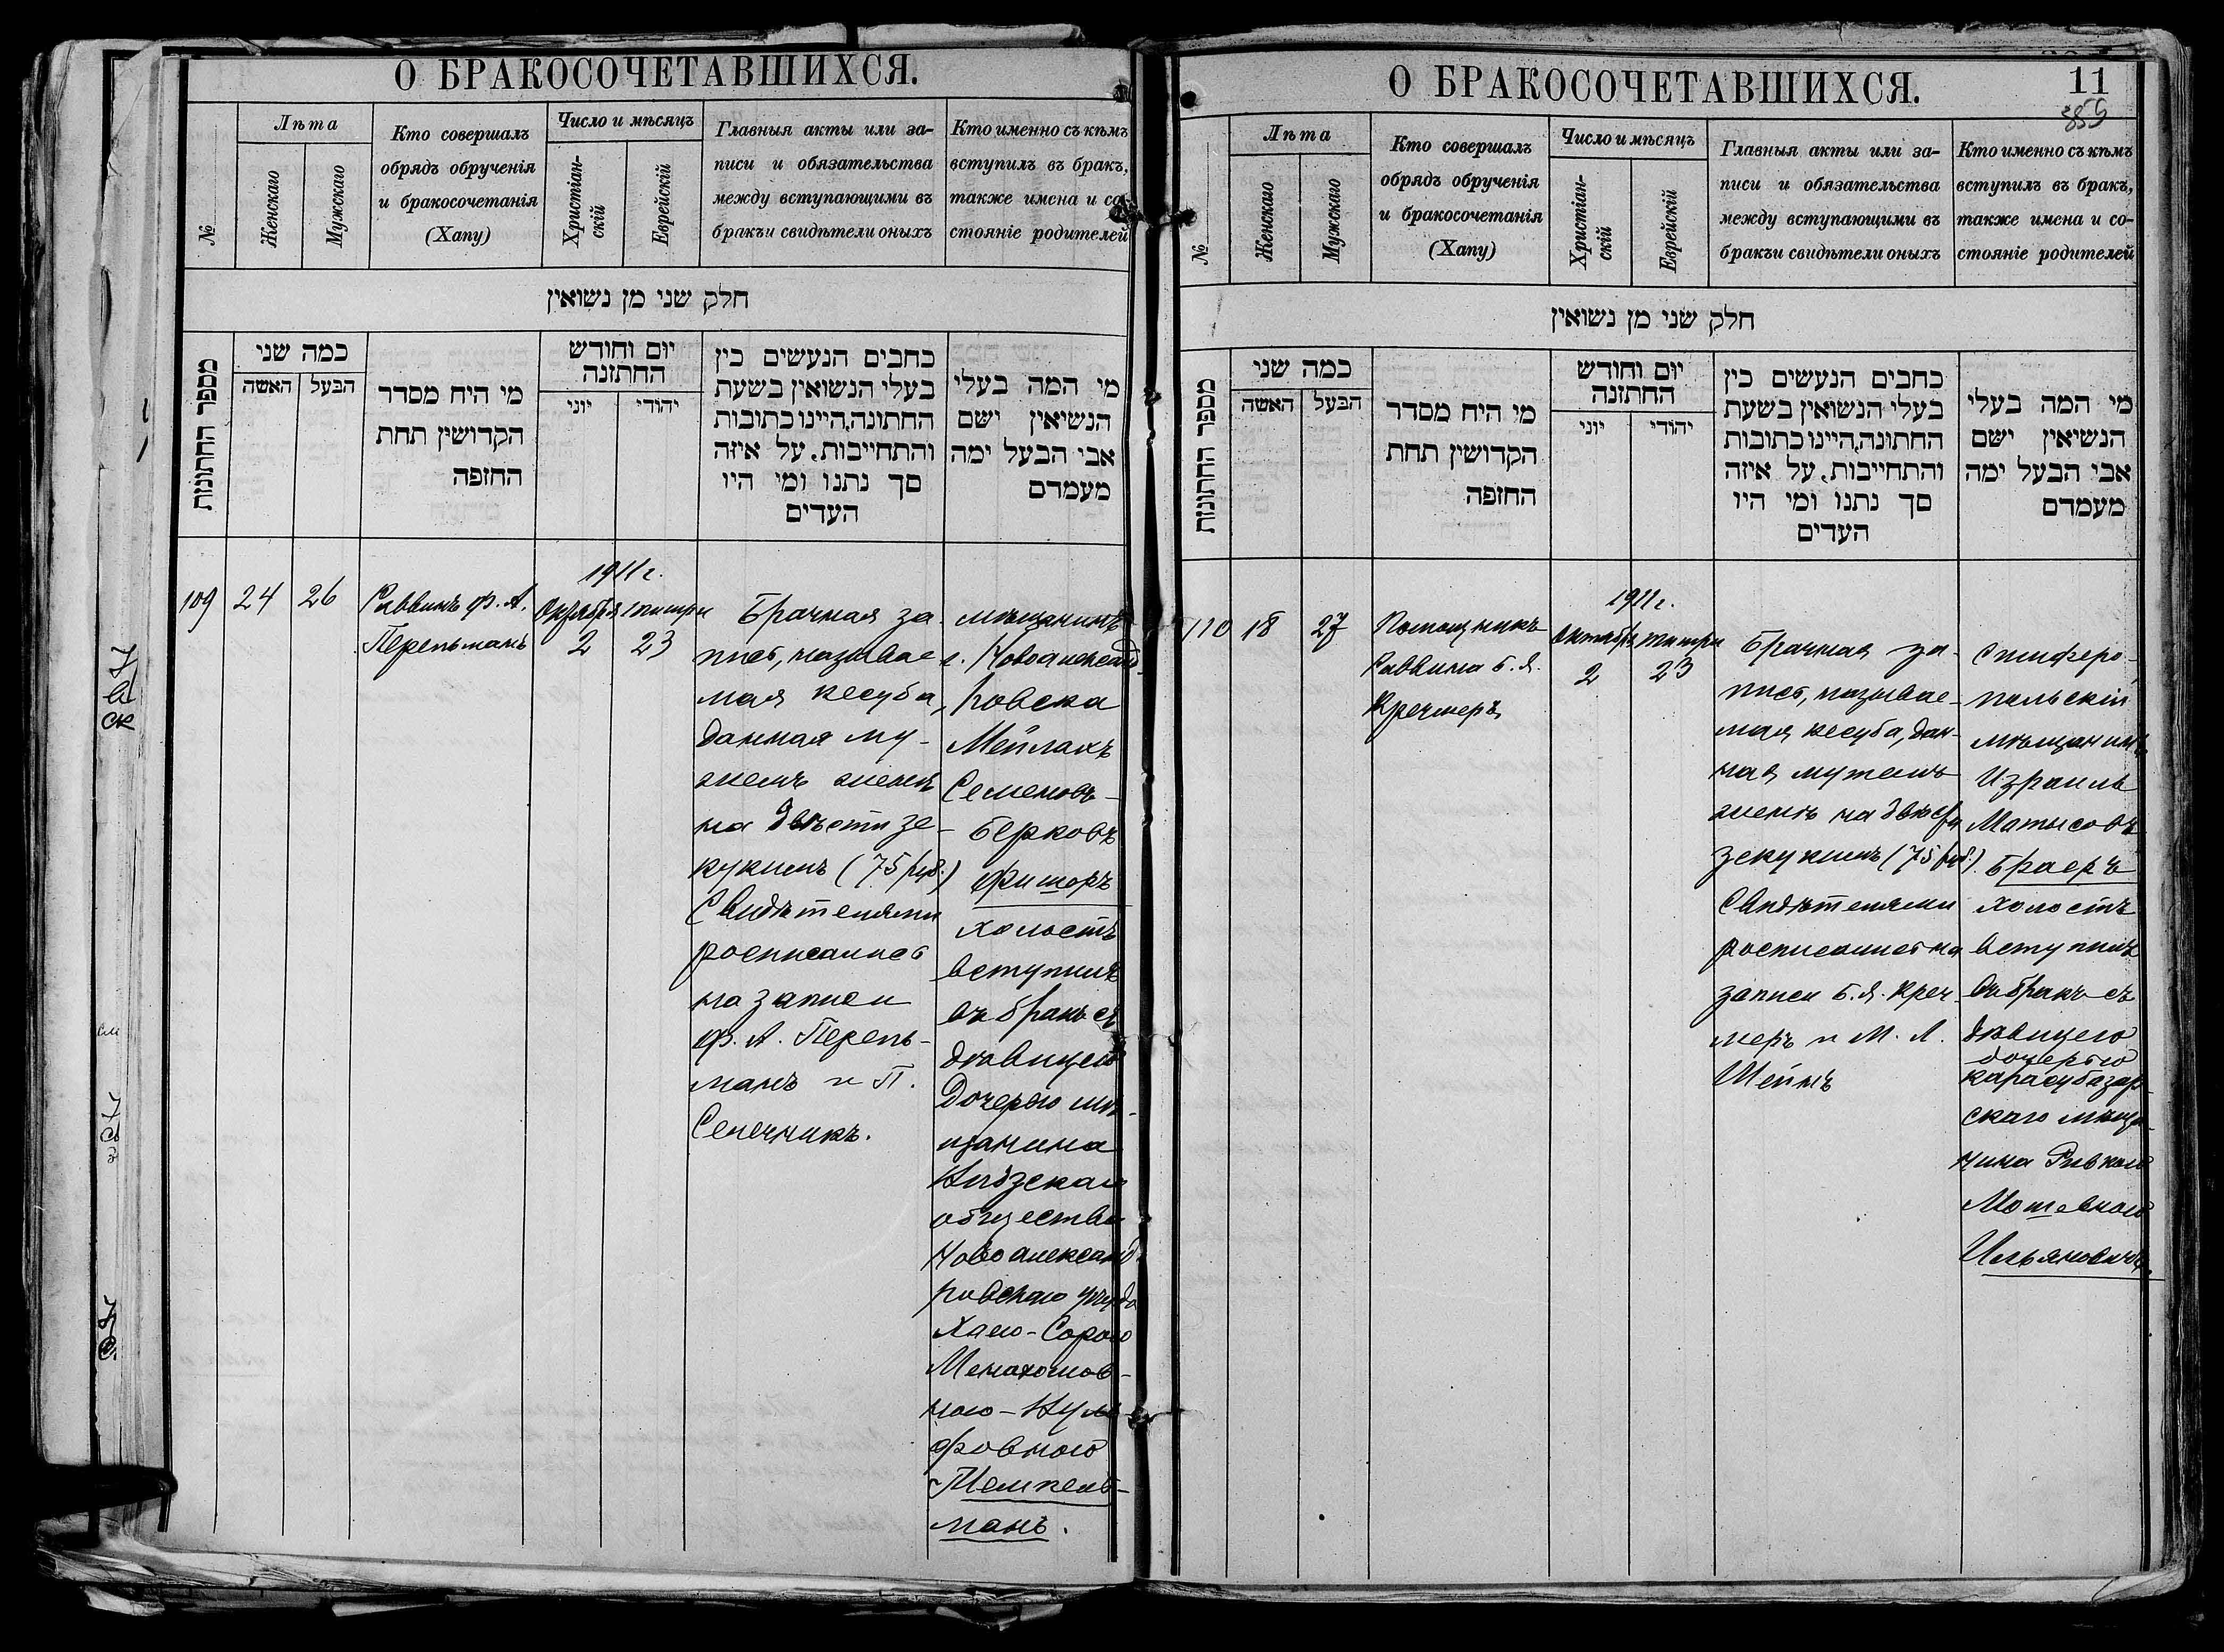 О БРАКОСОЧЕТАВШИХСЯ.
№
Лѣта
Женскаго
Мужскаго
Кто совершалъ
обрядъ обрученія
и бракосочетанія
(Хапу)
Число и мѣсяцъ
Христіан-
скій
Еврейскій
Главныя акты или за-
писи и обязательства
между вступающими въ
бракъи свидѣтели оныхъ
Кто именно съ кѣмъ
вступилъ въ бракъ,
также имена и со-
стояніе родителей
חלק שני מן נשואין
מספר החתונות
כמה שני
האשה
הבעל
מי היח מסדר
הקדושין תחת
החופה
יום וחודש
החתונה
יוני
יהודי
כחבים הנעשים כין
בעלי הנשואין בשעת
החתונה,היינו כתובות
והתחייבות, על איזה
סך נתנו ומי היו
העדים
מי המה בעלי
הנשיאין ישם
אבי הבעל ימה
מעמדם
109
24
26
Раввинъ Ф. А.
Перельманъ
1911 г.
Октября
2
тишри
23
Брачная за-
пись, називае-
мая кесуба,
данная му-
жемъ женѣ
на двѣсти зе-
кукимъ (75 руб.)
Свидѣтелями
росписались
на записи
Ф. А. Перель-
манъ и П.
Сапечникъ.
мѣщанинъ
г. Новоалександ-
ровска
Мейлахъ
Семеновъ-
Берковъ
Фишоръ
холостъ
вступилъ
въ бракъ съ
дѣвицею
дочерью мѣ-
щанина
общества
Новоалександ-
ровскаго уѣзда
Хаею-Сорою
Менахомов-
ною-
фовною
Темкель-
манъ.
О БРАКОСОЧЕТАВШИХСЯ.
11
359
№
Лѣта
Женскаго
Мужскаго
Кто совершалъ
обрядъ обрученія
и бракосочетанія
(Хапу)
Число и мѣсяцъ
Христіан-
скій
Еврейскій
Главныя акты или за-
писи и обязательства
между вступающими въ
бракъи свидѣтели оныхъ
Кто именно съ кѣмъ
вступилъ въ бракъ,
также имена и со-
стояніе родителей
חלק שני מן נשואין
מספר החתונות
כמה שני
האשה
הבעל
מי היח מסדר
הקדושין תחת
החופה
יום וחודש
החתונה
יוני
יהודי
כחבים הנעשים כין
בעלי הנשואין בשעת
החתונה,היינו כתובות
והתחייבות, על איזה
סך נתנו ומי היו
העדים
מי המה בעלי
הנשיאין ישם
אבי הבעל ימה
מעמדם
110
18
27
Помощникъ
Раввина Б. Я.
Кречмеръ
1911 г.
Октябрь
2
тишри
23
Брачная за-
пись, называе-
мая кесуба, дан-
ная мужемъ
женѣ на двѣсти
зекукимъ (75 руб.)
Свидѣтелями
росписались на
записи Б. Я. Креч-
меръ и М. Л.
Шейнъ
Симферо-
польскій
мѣщанинъ
Израиль
Матысовъ
Браеръ
холостъ
вступилъ
въ бракъ съ
дѣвицею
дочерью
карасубазар-
скаго мѣща-
нина Ривкою
Мошевною
Ильяновичъ.